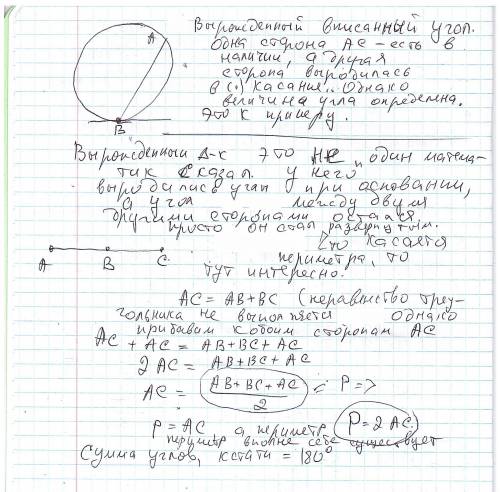 Вырожденный вписанный угол.
A одна сторона АС – есть в
наличии, а другая
сторона выродилась
в (·) касание.. Однако
величина угла определена.
B Это к примеру.
Вырожденный Δ-к это не "один матема-
тик сказал. У него
выродились углы при основании,
а угол между двумя
другими сторонами остался
просто он стал развернутым.
Что касается
A B C. периметра, то
тут интересно.
AC = AB+BC (неравенство треу-
гольника не выполняется однако
прибавим к обоим сторонам AC
AC + AC = AB+BC+AC
2 AC = AB+BC+AC
AC = AB+BC+AC / 2 P =>
P = AC, а периметр P = 2 AC.
периметр вполне себе существует
Сумма углов, кстати = 180°